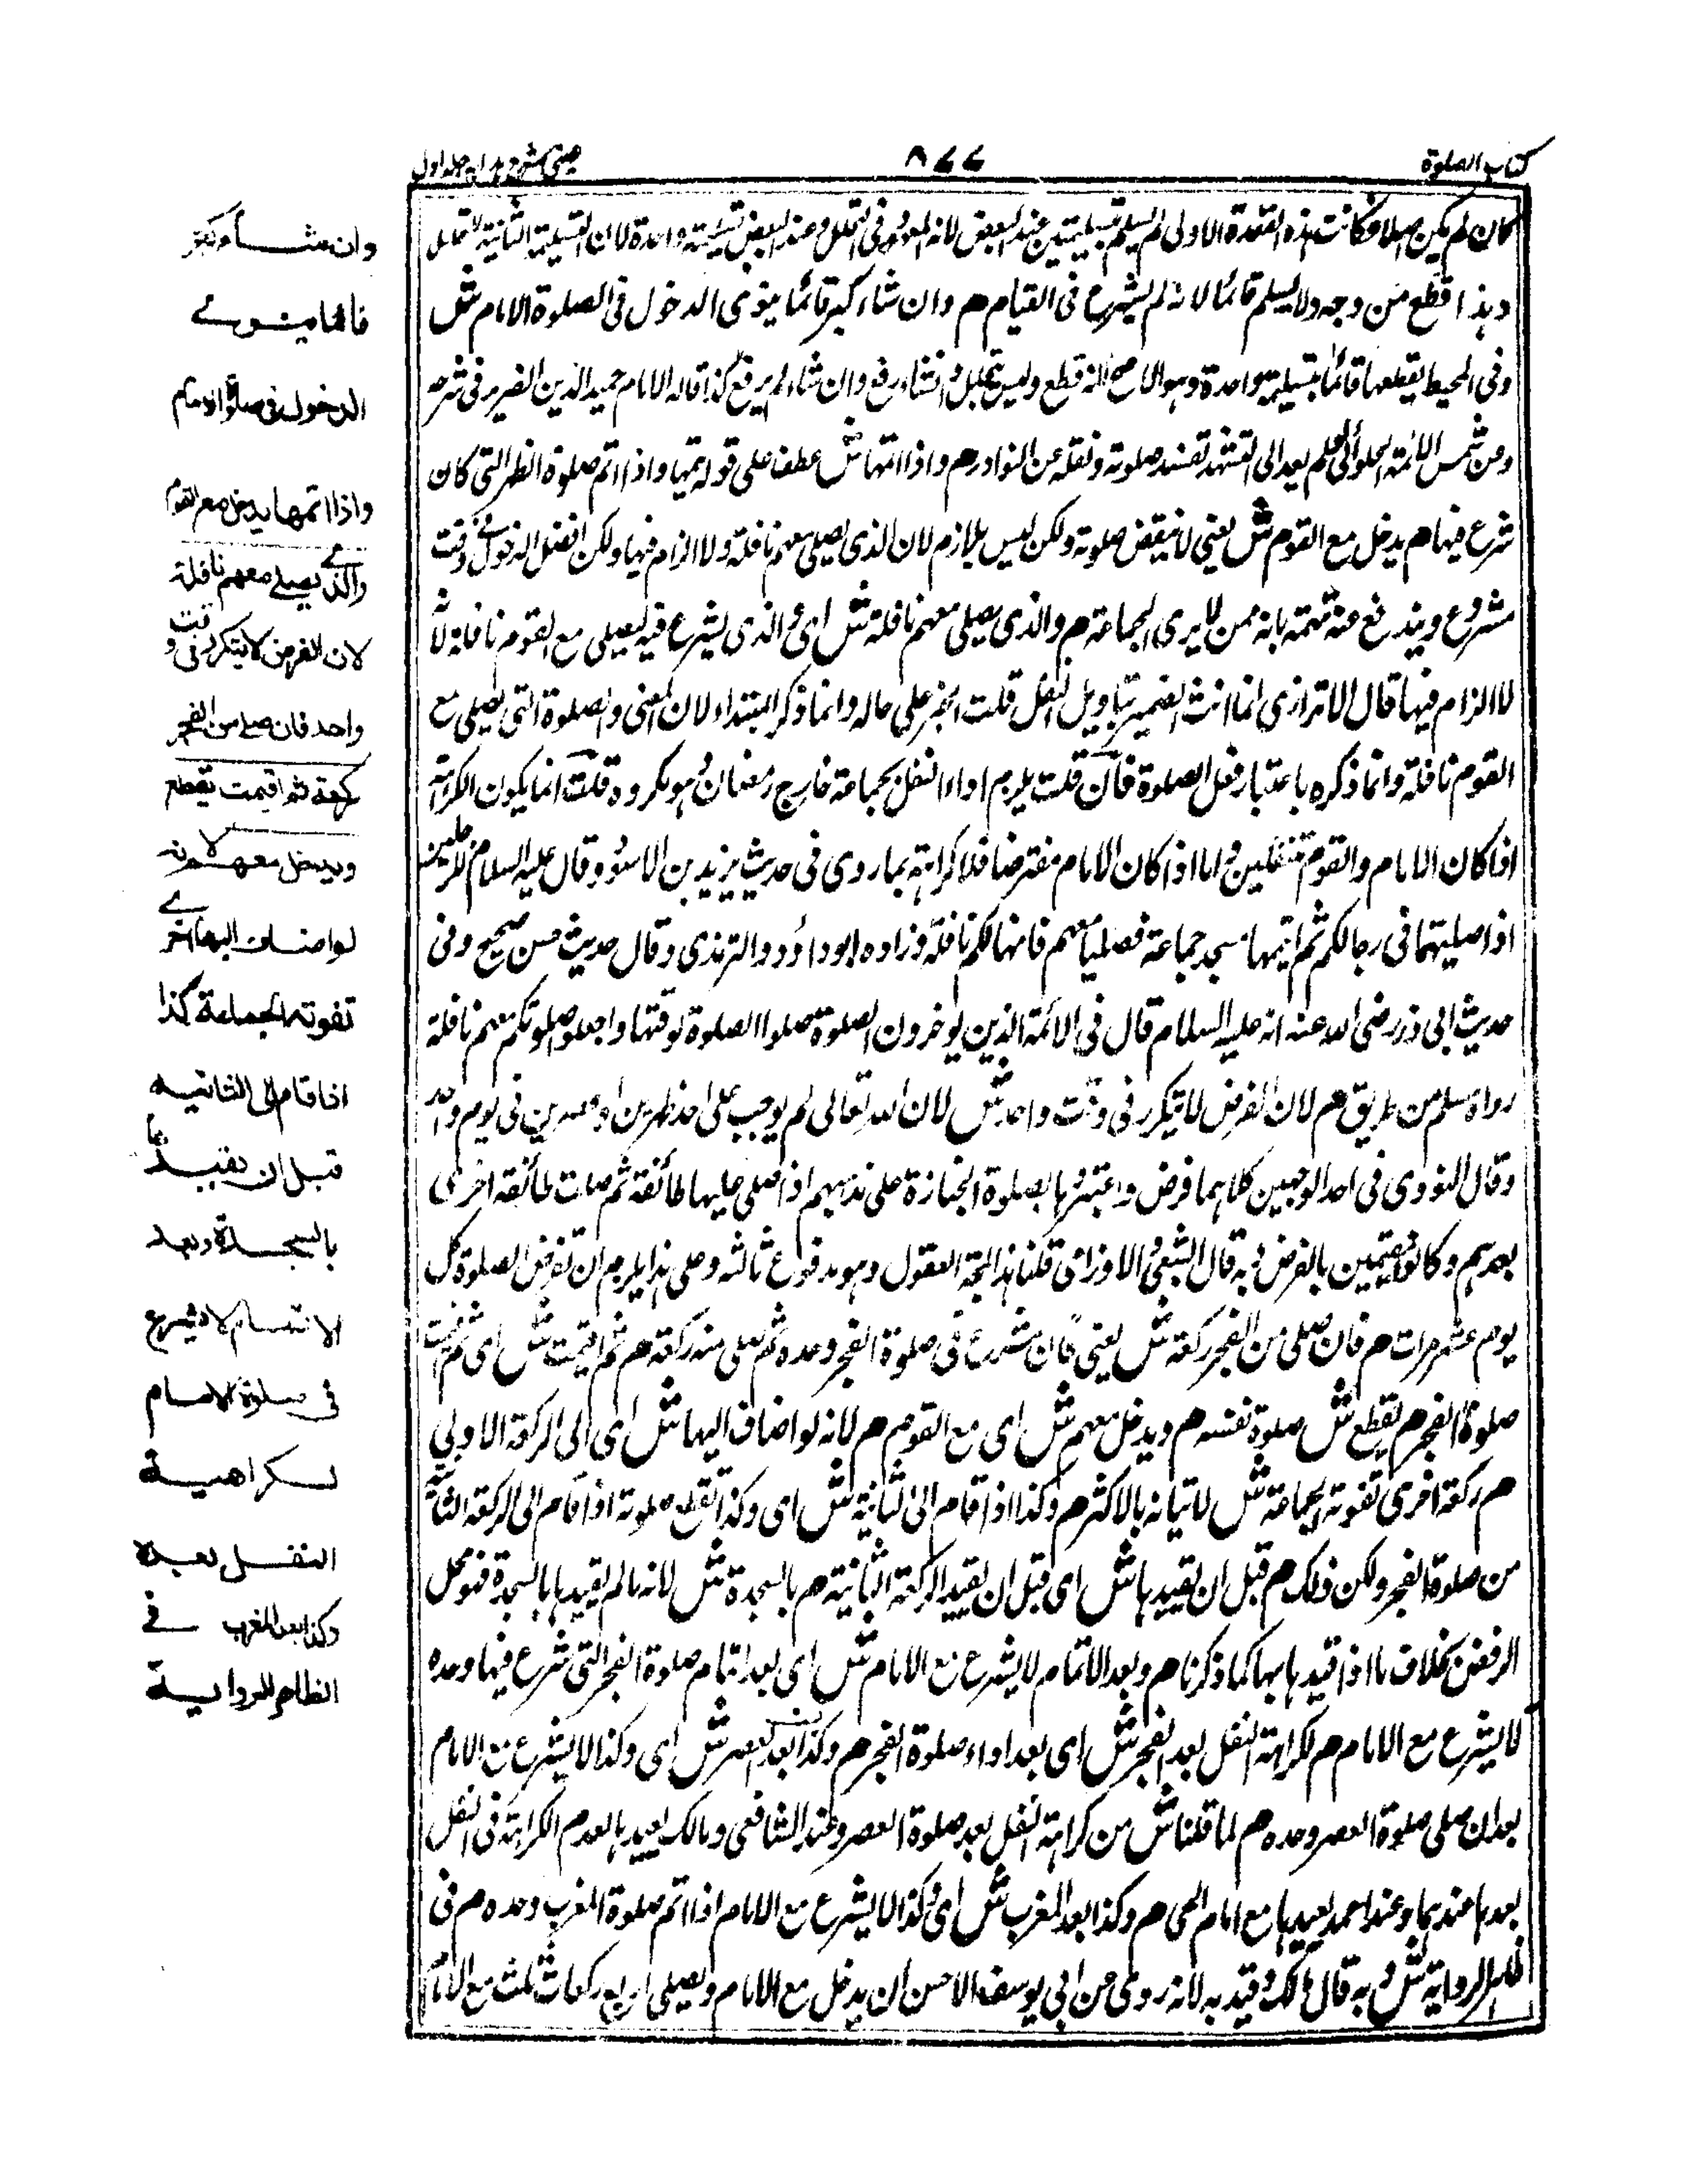 كتاب الصلوة
٨٧٧
عينى شرح هدايه جلد اول
كان لم يكن اصلا فكانت هذه القعدة الاولى ثم يسلم تسليمتين عند البعض لانه المعهود فى التحلل وعند البعض تسليمة واحدة لان التسليمة الثانية للتحلل
وهذا قطع من وجه ولا يسلم قائما لانه لم يشرع فى القيام هم وان شاء كبر قائما ينوى الدخول فى الصلوة الامام ش
وفى المحيط يقطعها قائما بتسليمة واحدة وهو الاصح لانه قطع وليس بتحلل وان شاء رفع وان شاء لم يرفع كذا قاله الامام حميد الدين الضرير فى شرحه
وعن شمس الائمة الحلوائى لم يعد الى التشهد تفسد صلوته ونقله عن النوادر هم واذا اتمها ش عطف على قوله يتمها واذا اتم صلوة الظهر التى كان
شرع فيها هم يدخل مع القوم ش يعنى لا ينقض صلوته ولكن ليس بلازم لان الذى يصلى معهم نافلة ولا الزام فيها ولكن افضل الدخول فى وقت
مشروع ويندفع عنه تهمته بانه ممن لا يرى الجماعة هم والذى يصلى معهم نافلة ش اى والذى يشرع فيه ليصلى مع القوم نافلة لا
لا الزام فيها قال الاترازى انما انث الضمير بتاويل النفل قلت الخبر على حاله وانما ذكر المبتداء لان المعنى والصلوة التى يصلى مع
القوم نافلة وانما ذكره باعتبار فعل الصلوة فان قلت يلزم اداء النفل بجماعة خارج رمضان وهو مكروه قلت انما يكون الكراهة
اذا كان الامام والقوم متنفلين واما اذا كان الامام مفترضا فلا كراهة بما روى فى حديث يزيد بن الاسود وقال عليه السلام للرجلين
اذا صليتما فى رحالكم ثم اتيتما مسجد جماعة فصليا معهم فانها لكم نافلة وزاده ابو داؤد والترمذى وقال حديث حسن صحيح وفى
حديث ابى ذر رضى الله عنه انه عليه السلام قال فى الائمة الذين يوخرون الصلوة صلوا الصلوة لوقتها واجعلوا صلوتكم معهم نافلة
رواه مسلم من طريق هم لان الفرض لا يتكرر فى وقت واحد ش لان الله تعالى لم يوجب على احد ظهرين او عصرين فى يوم واحد
وقال النووى فى احد الوجهين كلاهما فرض واعتبروها بصلوة الجنازة على مذهبهم اذا صلى عليها طائفة ثم صلت طائفة اخرى
بعدهم وكانوا متيممين بالفرض وبه قال الشعبى والاوزاعى قلنا هذا لجة العقول وهو مدفوع ثالثه وعلى هذا يلزم ان تفرض الصلوة كل
يوم عشر مرات هم فان صلى من الفجر ركعة ش يعنى فان شرع فى صلوة الفجر وحده ثم صلى منه ركعة هم ثم اقيمت ش اى ثم اقيمت
صلوة الفجر هم يقطع ش صلوة نفسه هم ويدخل معهم ش اى مع القوم هم لانه لو اضاف اليها ش اى الى الركعة الاولى
هم ركعة اخرى تفوته الجماعة ش لاتيانه بالاكثر هم وكذا اذا قام الى الثانية ش اى وكذا تقطع صلوته اذا قام الى الركعة الثانية
من صلوة الفجر ولكن ذلك هم قبل ان يقيدها ش اى قبل ان يقيد الركعة الثانية هم بالسجدة ش لانه ما لم يقيدها بالسجدة فهو محل
الرفض بخلاف ما اذا قيدها بها كما ذكرنا هم وبعد الاتمام لا يشرع مع الامام ش اى بعد اتمام صلوة الفجر التى شرع فيها وحده
لا يشرع مع الامام هم لكراهة النفل بعد الفجر ش اى بعد اداء صلوة الفجر هم وكذا بعد العصر ش اى وكذا لا يشرع مع الامام
بعد ان صلى صلوة العصر وحده هم لما قلنا ش من كراهة النفل بعد صلوة العصر وعند الشافعى ومالك يعيدها لعدم الكراهة فى النفل
بعدها عندهما وعند احمد يعيدها مع امام الحى هم وكذا بعد المغرب ش اى وكذا لا يشرع مع الامام اذا اتم صلوة المغرب وحده هم فى
ظاهر الرواية ش وبه قال مالك وقيد به لانه روى عن ابى يوسف الاحسن ان يدخل مع الامام ويصلى اربع ركعات ثلث مع الامام
وان شاء كبر
قائما ينوے
الدخول فى صلوة الامام
واذا اتمها يدخل مع القوم
والذے يصلے معهم نافلة
لان الفرض لا يتكرر فى وقت
واحد فان صلے من الفجر
ركعة ثم اقيمت يقطع
ويدخل معهم لانه
لو اضاف اليها اخرے
تفوته الجماعة كذا
اذا قام الى الثانيه
قبل ان يقيدها
بالسجدة وبعد
الاتمام لا يشرع
فى صلوة الامام
لكراهية
النفل بعده
وكذا بعد المغرب فے
الظاهر الرواية